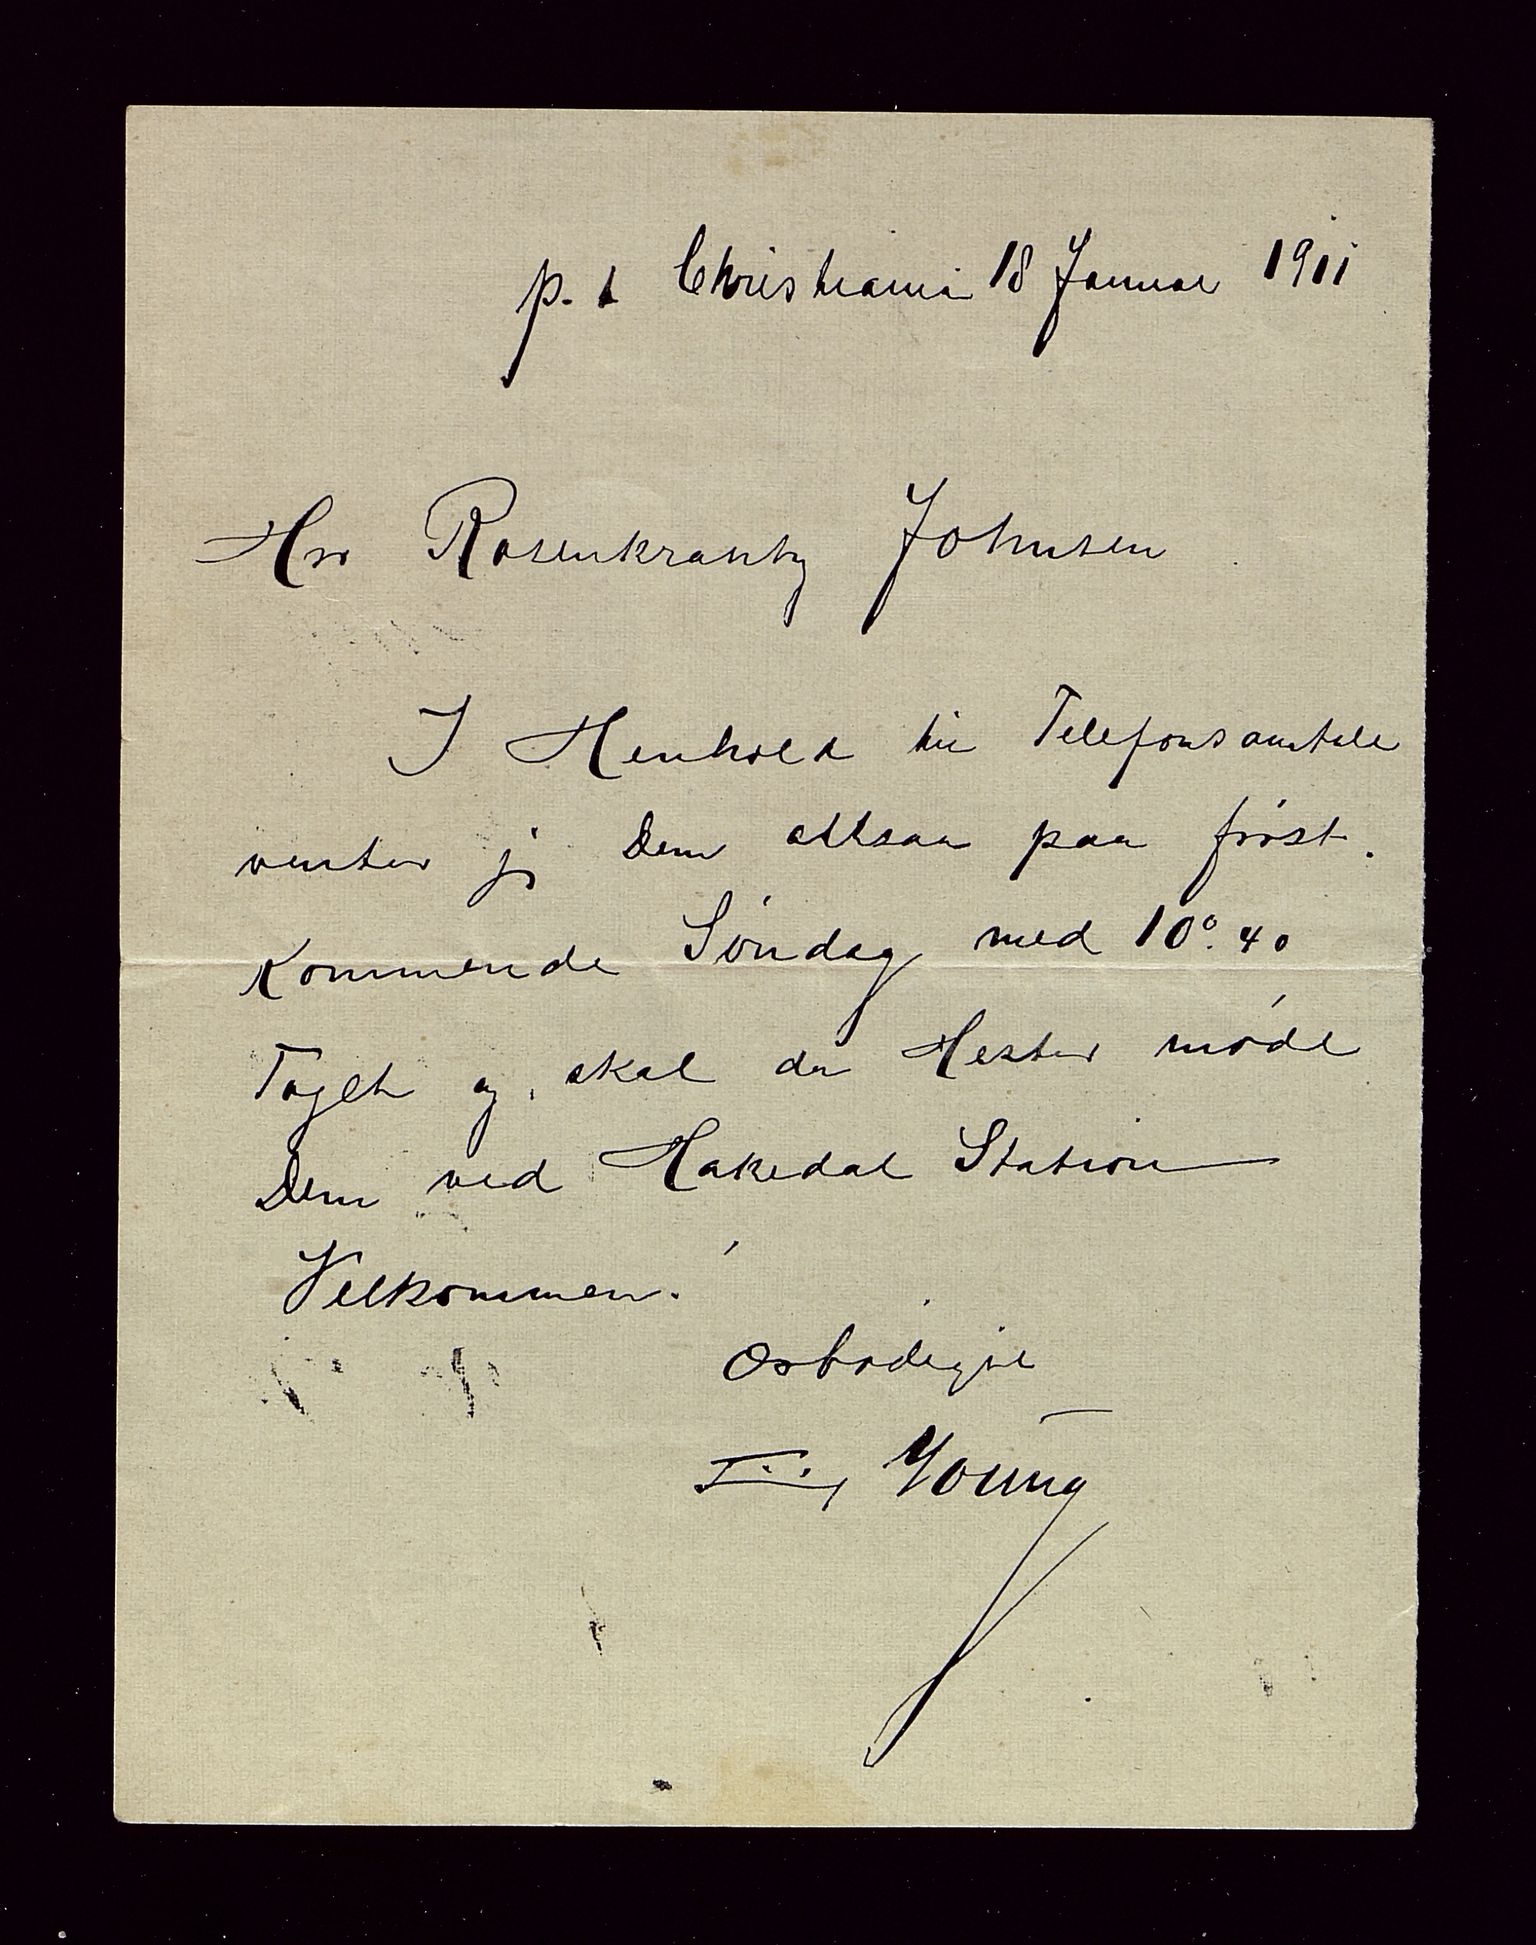 p. t Christiania 18 Januar 1911
Hrr Rosenkrantz Johnsen
I Henhold til Telefonsamtale
venter jeg Dem altsaa paa først.
kommende Søndag med 10º.40
Toget og skal da Hester møde
Dem ved Hakedal Station
Velkommen.
Ærbødigst
Young